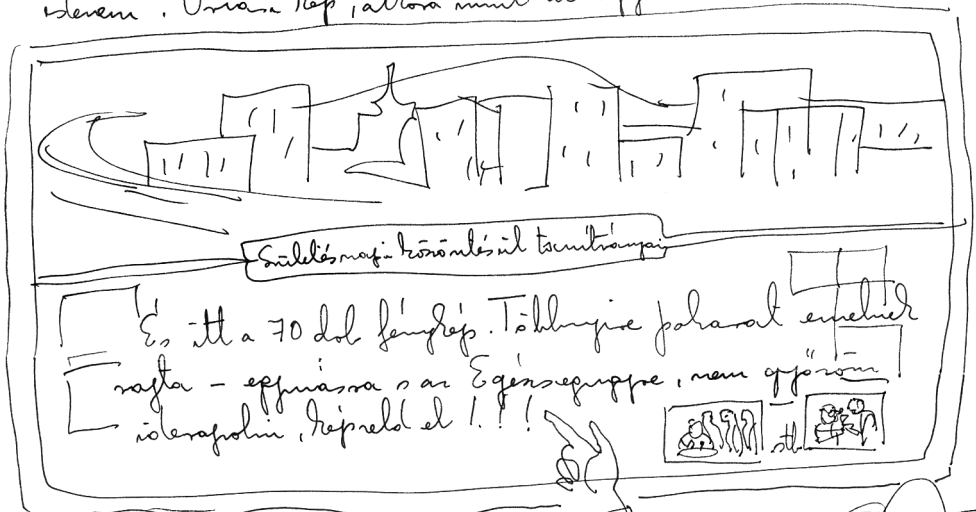 istenem. Óriási kép, akkora mint
Születésnapi köszöntésül tanítványai
És itt a 70 dob fénykép. Többnyire poharat emelnek
rajta – egymásra s az Egészségügyre, nem győzöm
iderajzolni, képzeld el!!!
stb